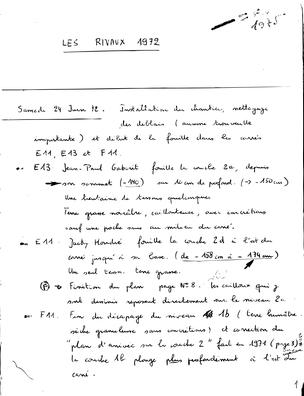 1975
LES RIVAUX 1972
Samedi 24 Juin 72. Installation du chantier, nettoyage
des déblais (aucune trouvaille
importante) et début de la fouille dans les carrés
E11, E13 et F11.
E13 Jean-Paul fouille la couche 2a, depuis
son sommet (-140) sur 10 cm de profond. (→ -150 cm)
Une trentaine de tessons quelconques
Terre grasse noirâtre, caillouteuse, avec concrétions
sauf une poche sans au milieu du carré.
E11. Jacky fouille la couche 2d à l'est du
carré jusqu'à sa base. (de -158 cm à -174 cm)
Un seul tesson. terre grasse.
Finition du plan page N° 8. les cailloux qui y
sont dessinés reposent directement sur le niveau 2a
F11. Fin du décapage du niveau 1b (terre
sèche grumeleuse sans concrétions) et correction du
"plan d'arrivée sur la couche 2" fait en 1971 (page 9)
la couche 1b plonge plus profondément à l'est du
carré.
1